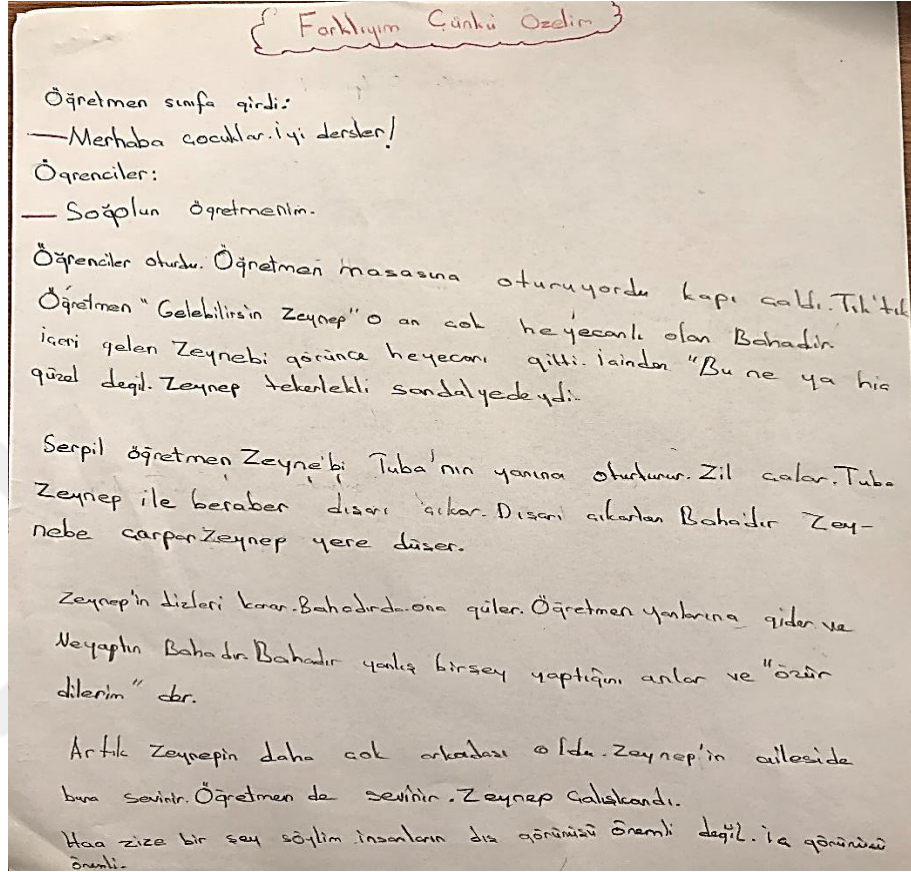 Farklıyım Çünkü Özelim
Öğretmen sınıfa girdi:
—Merhaba çocuklar. İyi dersler!
Öğrenciler:
— Sağolun öğretmenim.
Öğrenciler oturdu. Öğretmen masasına oturuyordu kapı çaldı. Tık'tık
Öğretmen "Gelebilirsin Zeynep" o an çok heyecanlı olan Bahadır.
içeri gelen Zeynebi görünce heyecanı gitti. İçinden "Bu ne ya hiç
güzel değil. Zeynep tekerlekli sandalyedeydi.
Serpil öğretmen Zeyne'bi Tuba'nın yanına oturtunur. Zil çalar. Tuba
Zeynep ile beraber dışarı çıkar. Dışarı çıkarken Bahadır Zey-
nebe çarpar Zeynep yere düşer.
Zeynep'in dizleri kanar. Bahadırda ona güler. Öğretmen yanlarına gider ve
Neyaptın Bahadır. Bahadır yanlış birşey yaptığını anlar ve "özür
dilerim" der.
Artık Zeynepin daha çok arkadaşı oldu. Zeynep'in aileside
buna sevinir. Öğretmen de sevinir. Zeynep Çalışkandı.
Haa zize bir şey söylim insanların dış görünüşü önemli değil. İç görünüşü
önemli.